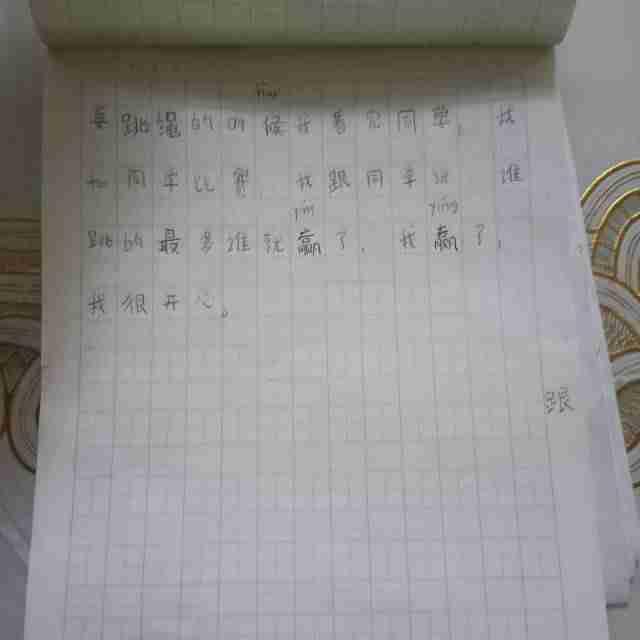 要跳绳的时候我看见同学，我
和同学比赛。我跟同学说谁
跳的最多谁就赢了，我赢了，
我很开心。
跟